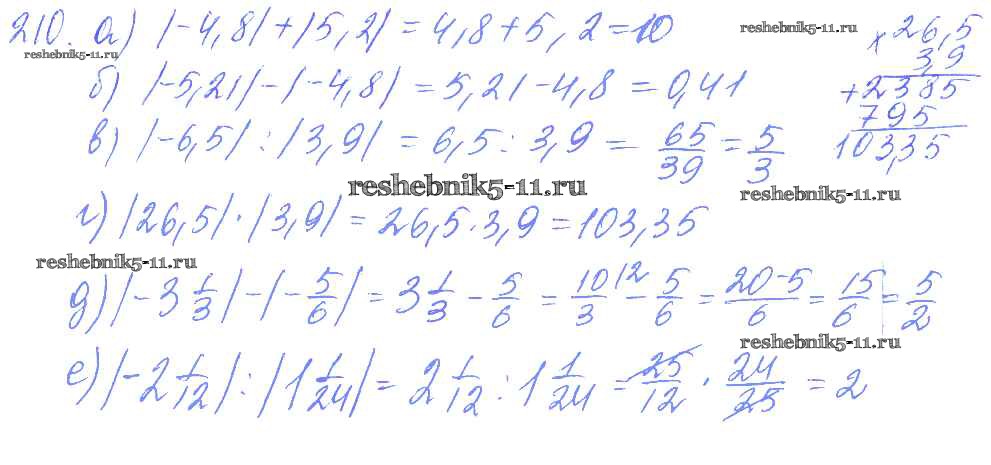 210. а) |-4,8| + |5,2| = 4,8 + 5,2 = 10
reshebnik5-11.ru
б) |-5,21| - |-4,8| = 5,21 - 4,8 = 0,41
в) |-6,5| : |3,9| = 6,5 : 3,9 = 65/39 = 5/3
reshebnik5-11.ru
г) |26,5| · |3,9| = 26,5 · 3,9 = 103,35
reshebnik5-11.ru
д) |-3 1/3| - |-5/6| = 3 1/3 - 5/6 = 10/3 |2 - 5/6 = 20-5/6 = 15/6 = 5/2
е) |-2 1/12| : |1 1/24| = 2 1/12 : 1 1/24 = 25/12 · 24/25 = 2
reshebnik5-11.ru
× 26,5
3,9
+ 2385
795
103,35
reshebnik5-11.ru
reshebnik5-11.ru